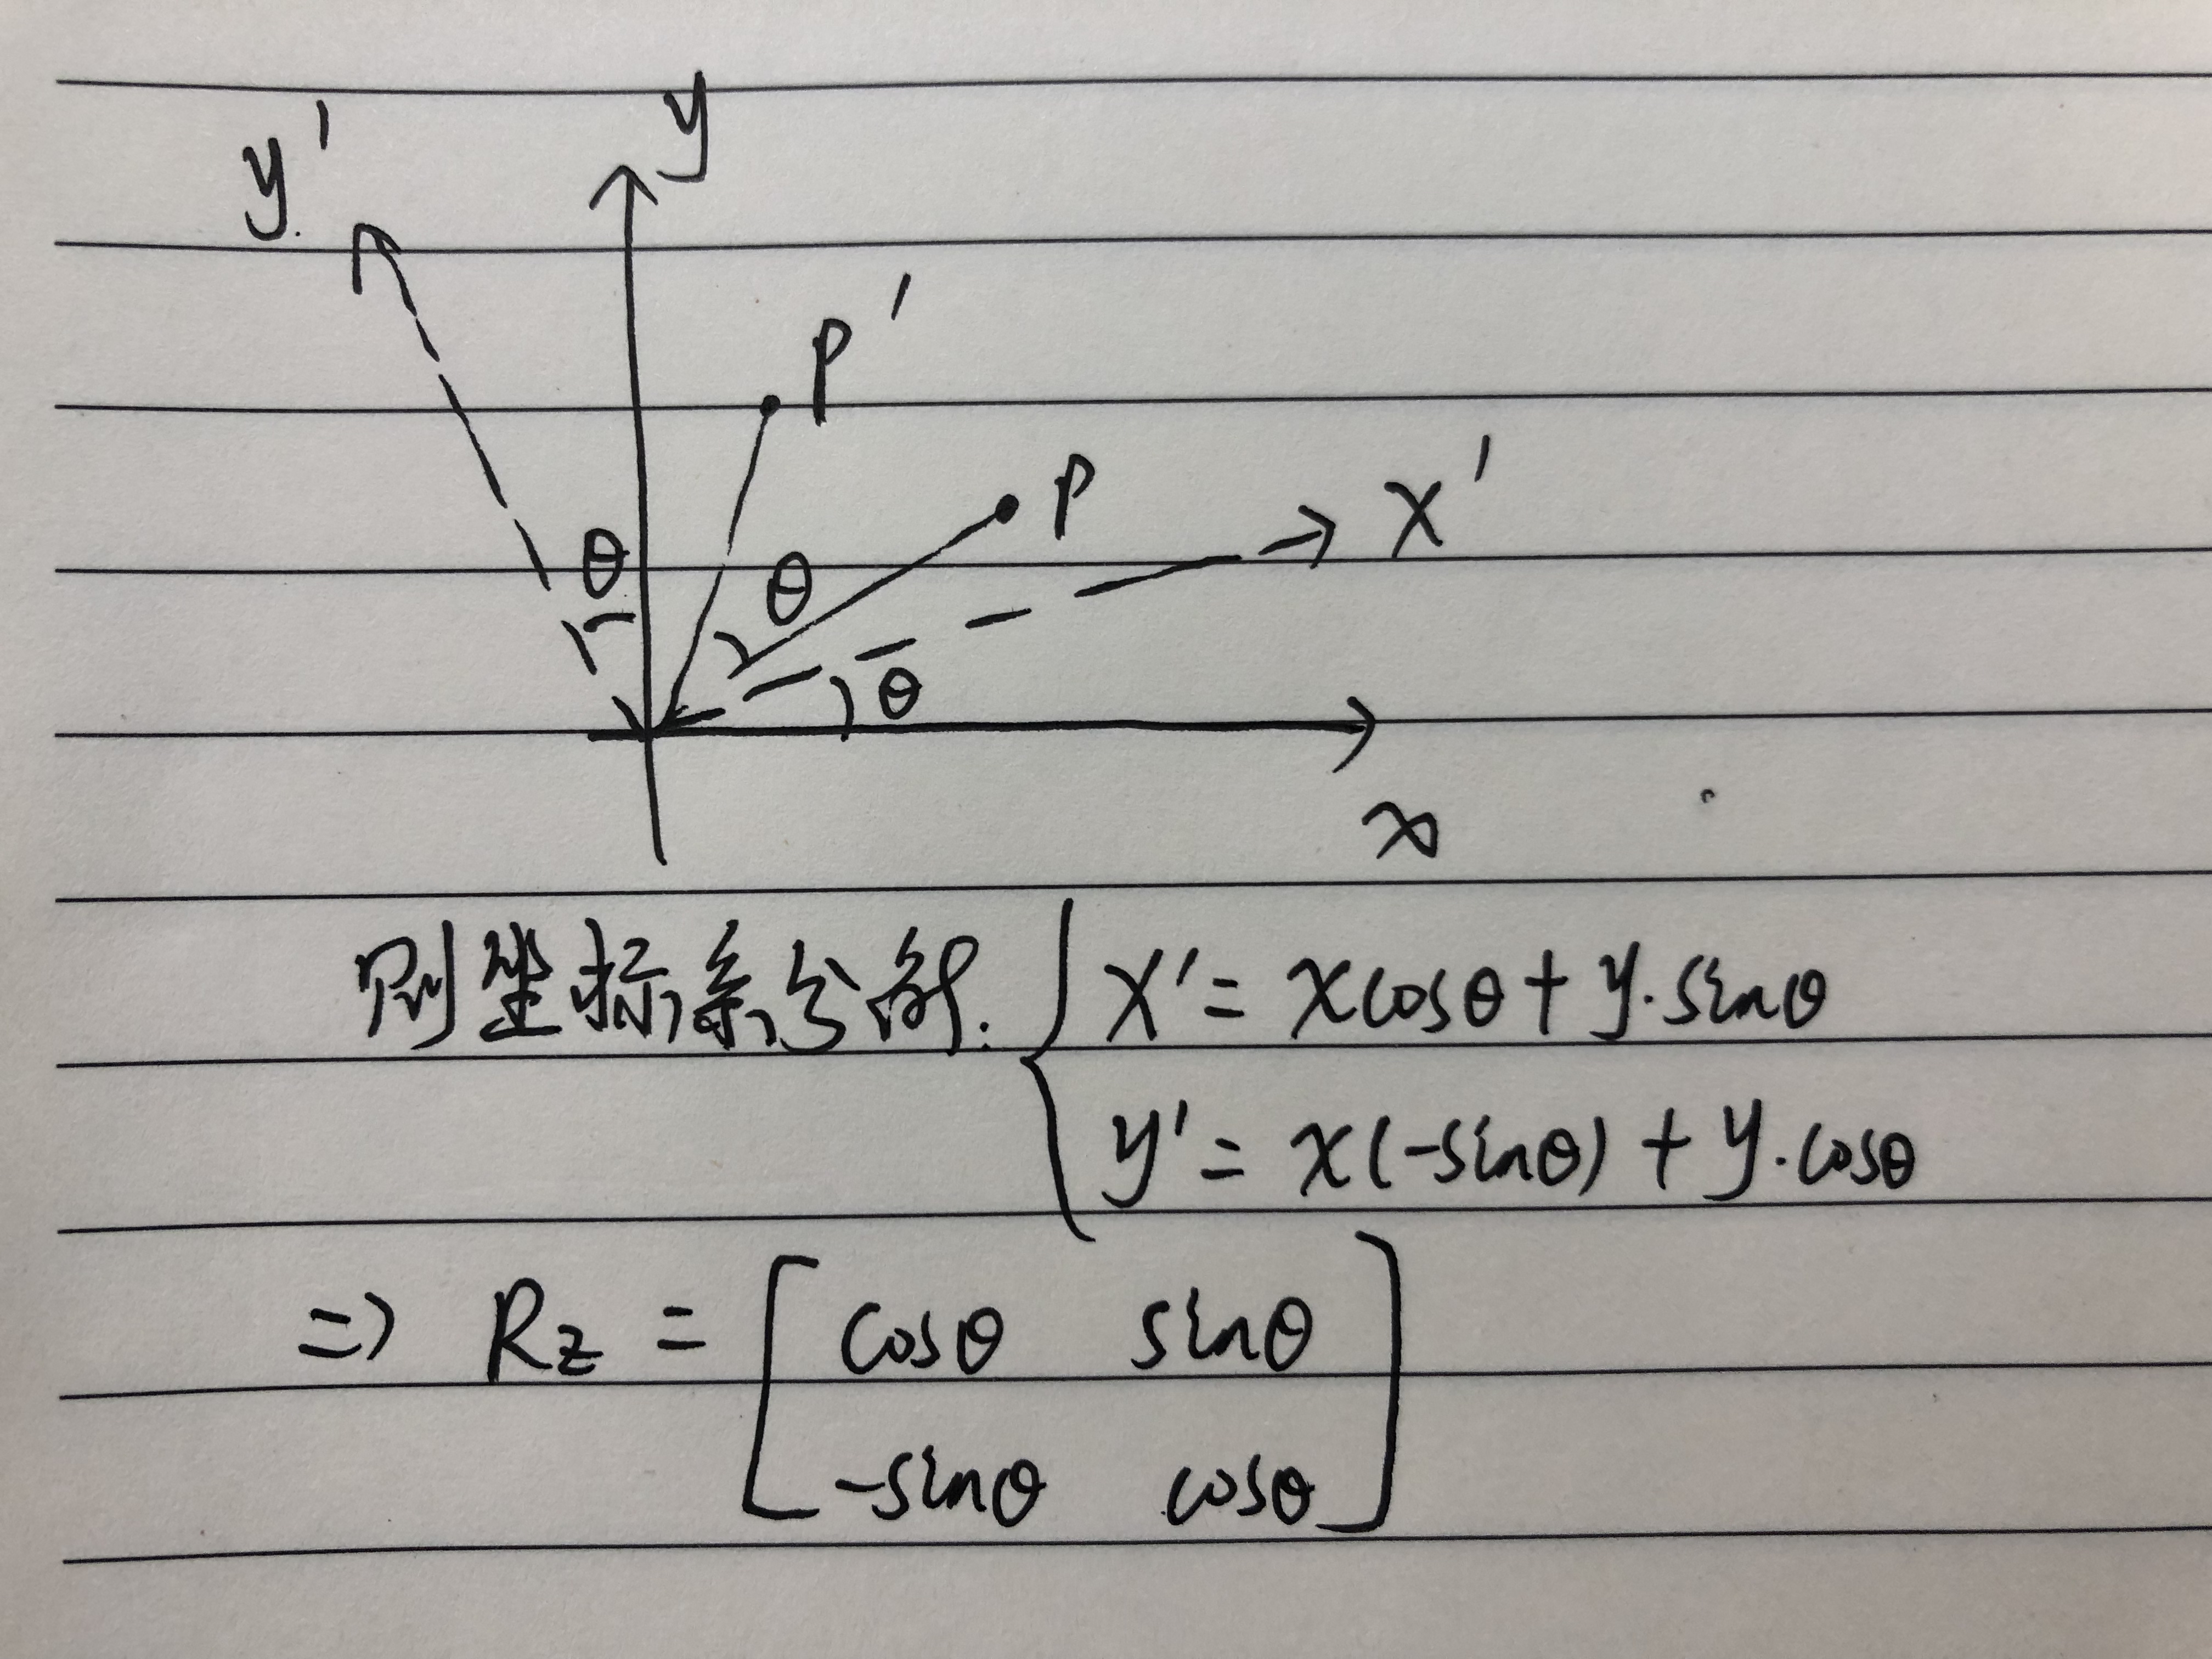 y'
y
θ
P'
θ
P
θ
x'
x
则坐标系旋转: { x' = xcosθ + y·sinθ
y' = x(-sinθ) + y·cosθ
=> Rz = [ cosθ sinθ
-sinθ cosθ ]